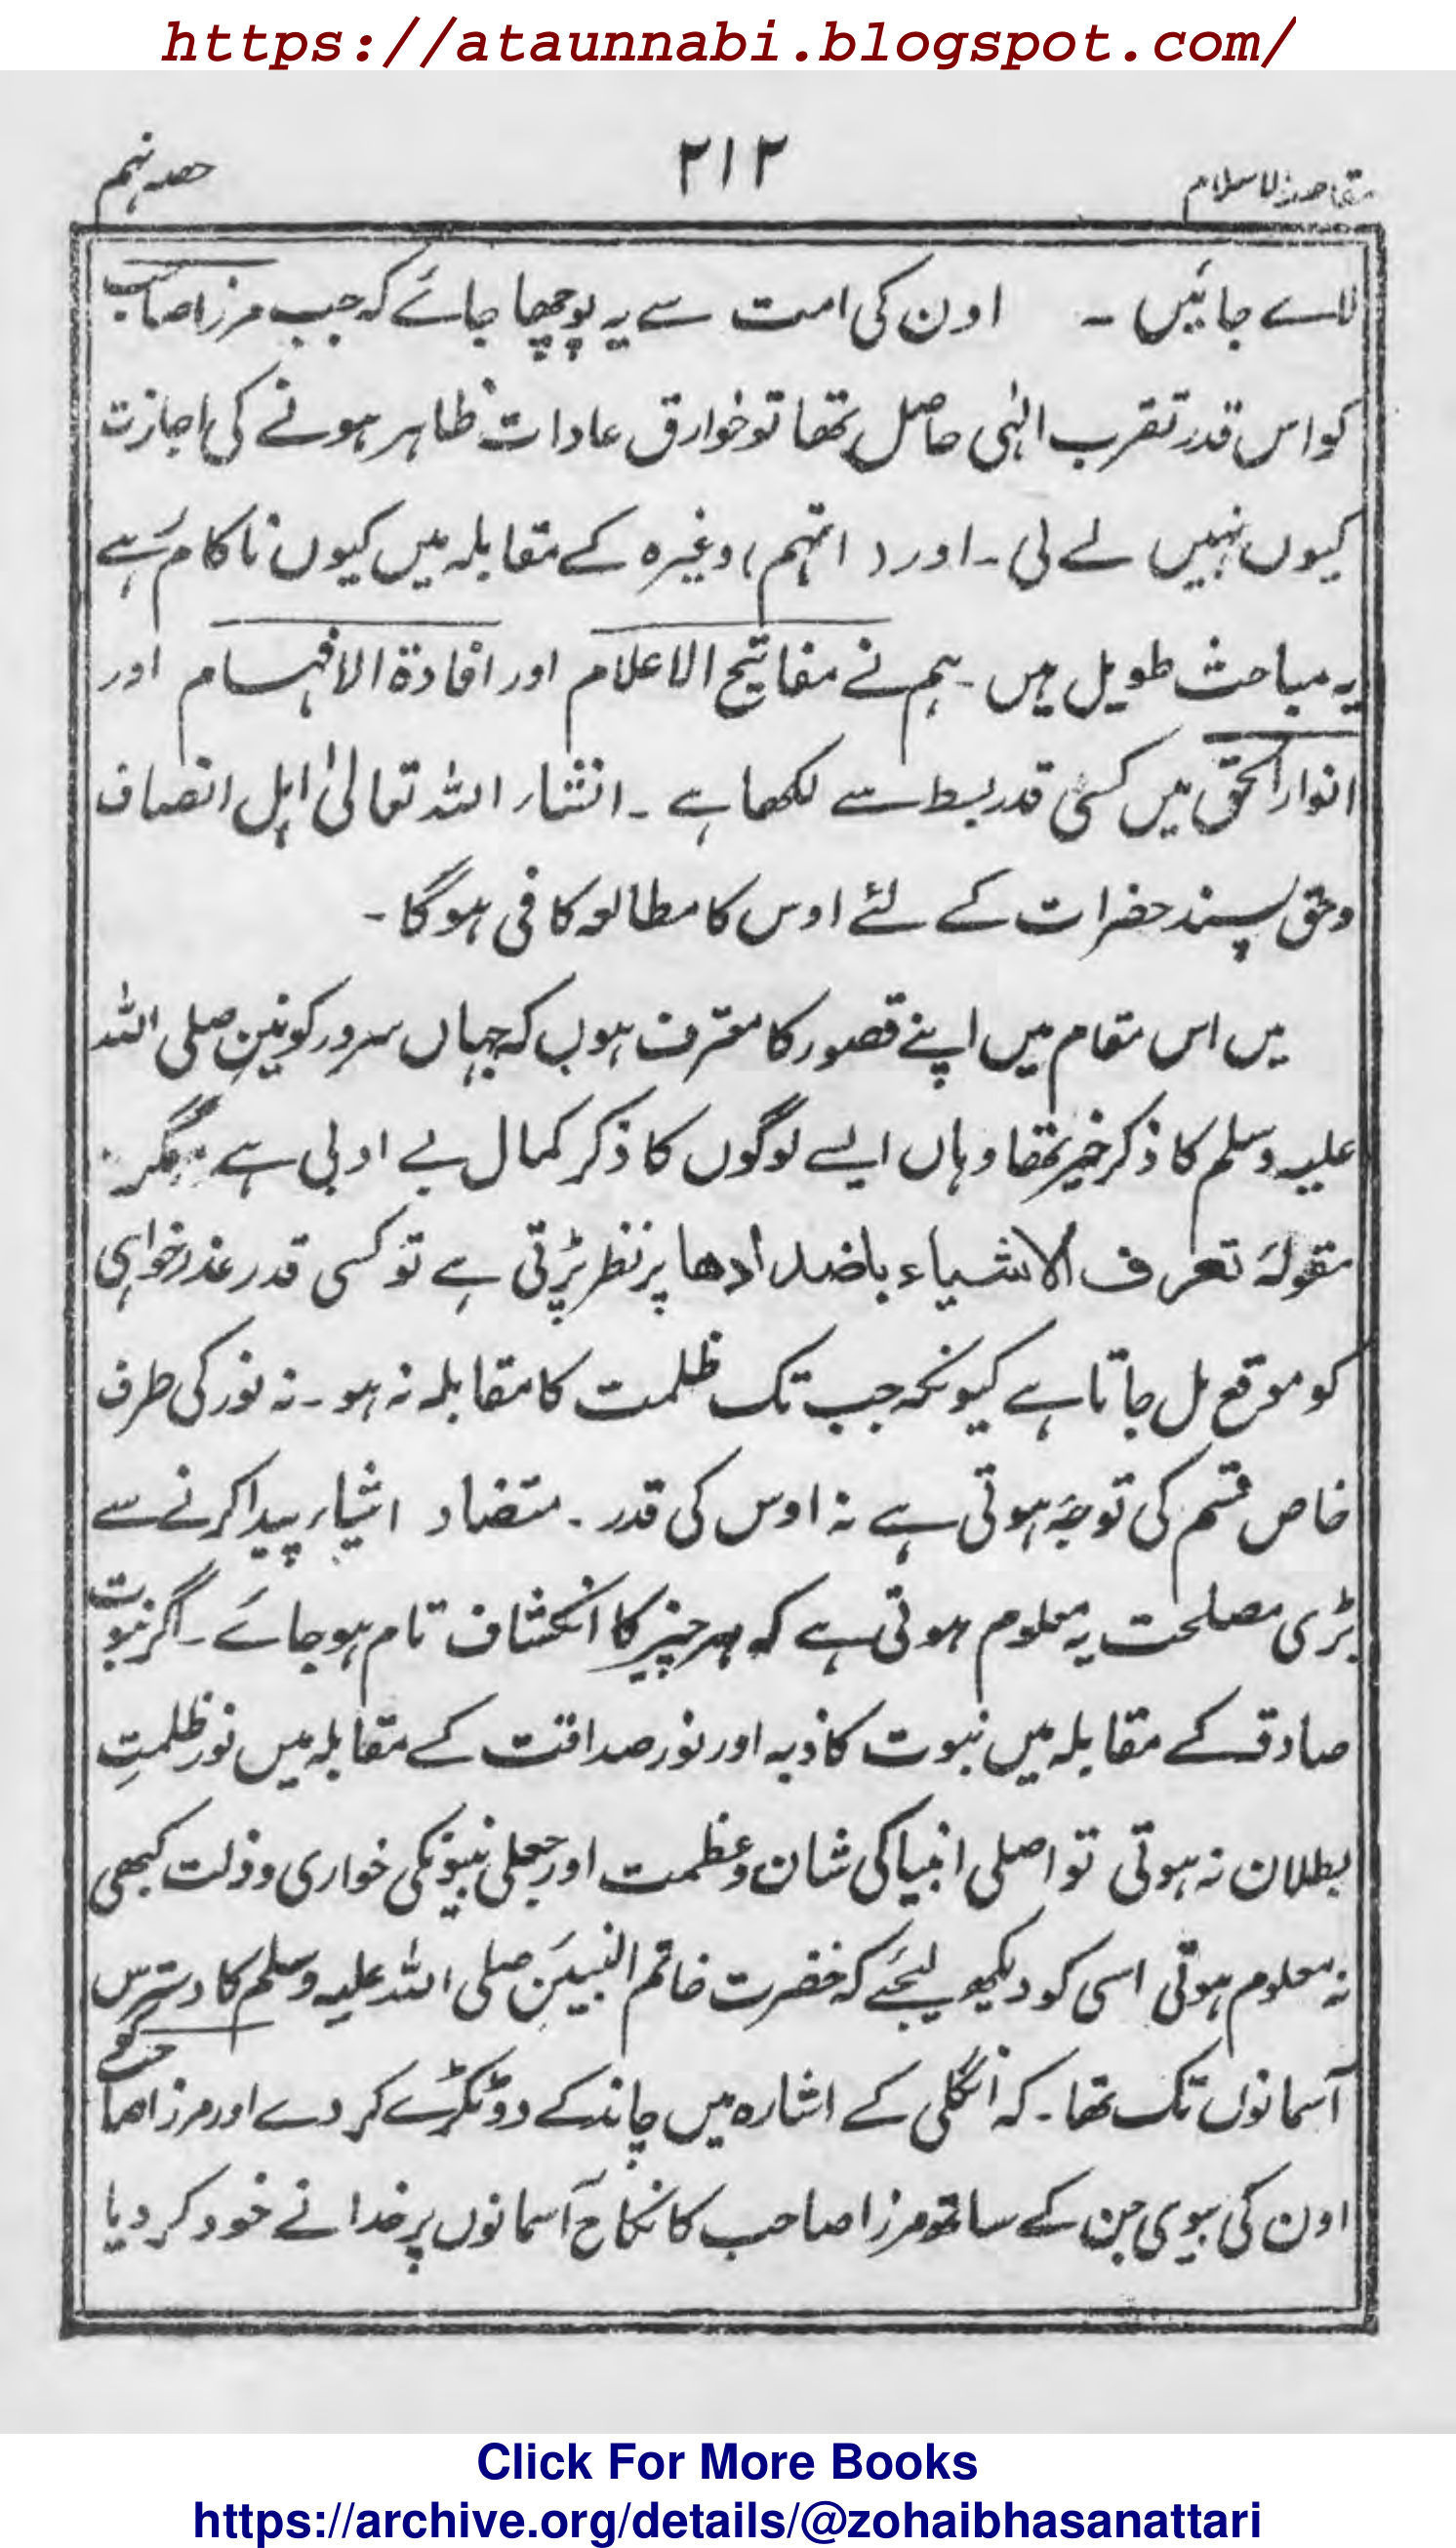 https://ataunnabi.blogspot.com/
مقاصد الاسلام ۲۱۲ حصہ نہم
لاے جائیں ۔ اون کی امت سے یہ پوچھا جائے کہ جب مرزا صاحب
کو اس قدر تقرب الٰہی حاصل تھا تو خوارق عادات ظاہر ہونے کی اجازت
کیوں نہیں لے لی ۔ اور ( اتہم ) وغیرہ کے مقابلہ میں کیوں ناکام رہے
یہ مباحث طویل ہیں ۔ ہم نے مفاتیح الاعلام اور افادۃ الافہام اور
انوار الحق میں کسی قدر بسط سے لکھا ہے ۔ انشاء اللہ تعالیٰ اہل انصاف
و حق پسند حضرات کے لئے اوس کا مطالعہ کافی ہوگا ۔
میں اس مقام میں اپنے قصور کا معترف ہوں کہ جہاں سرور کونین صلی اللہ
علیہ وسلم کا ذکر خیر تھا وہاں ایسے لوگوں کا ذکر کمال بے ادبی ہے مگر
مقولہ تعرف الاشیاء باضدادھا پر نظر پڑتی ہے تو کسی قدر عذر خواہی
کو موقع مل جاتا ہے کیونکہ جب تک ظلمت کا مقابلہ نہ ہو ۔ نہ نور کی طرف
خاص قسم کی توجہ ہوتی ہے نہ اوس کی قدر ۔ متضاد اشیاء پیدا کرنے سے
بڑی مصلحت یہ معلوم ہوتی ہے کہ ہر چیز کا انکشاف تام ہو جائے ۔ اگر نبوت
صادقہ کے مقابلہ میں نبوت کاذبہ اور نور صداقت کے مقابلہ میں نور ظلمتِ
بطلان نہ ہوتی تو اصلی انبیا کی شان و عظمت اور جعلی نبیونکی خواری و ذلت کبھی
نہ معلوم ہوتی اسی کو دیکھ لیجئے کہ حضرت خاتم النبیین صلی اللہ علیہ وسلم کا دسترس
آسمانوں تک تھا ۔ کہ انگلی کے اشارہ میں چاند کے دو ٹکڑے کر دے اور مرزا صاحب کو
اون کی بیوی جن کے ساتھ مرزا صاحب کا نکاح آسمانوں پر خدا نے خود کر دیا
Click For More Books
https://archive.org/details/@zohaibhasanattari